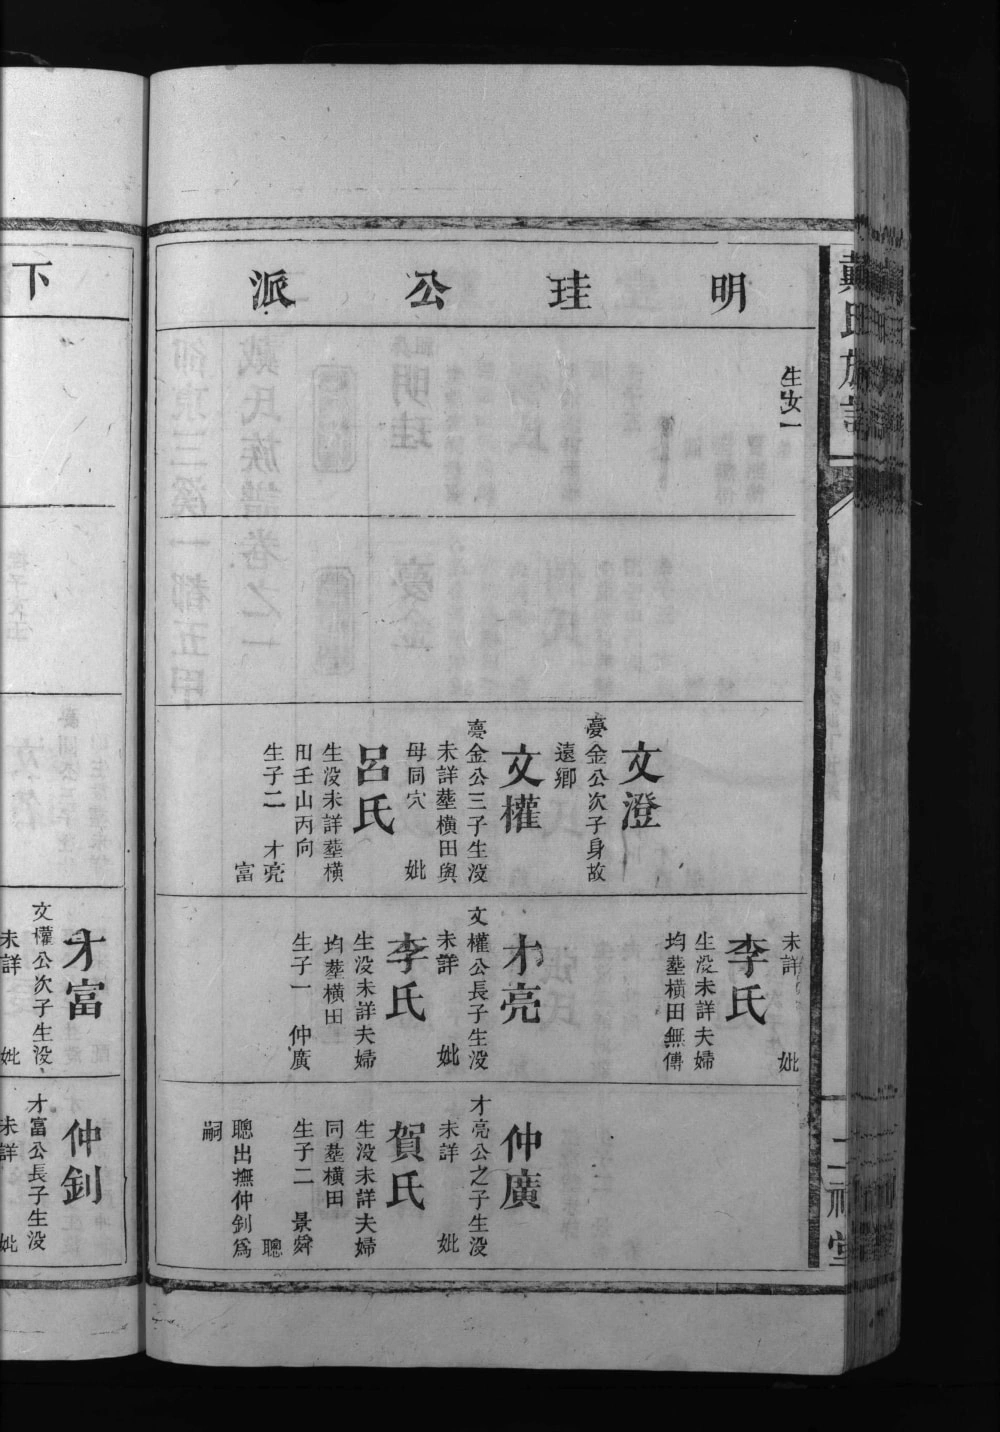 戴氏族譜
明珪公派
生女一
文澄
憂金公次子身故
遠鄉
文權
憂金公三子生沒
未詳塟橫田與
母同穴 妣
呂氏
生沒未詳塟橫
田壬山丙向
生子二 才亮
富
未詳 妣
李氏
生沒未詳夫婦
均塟橫田無傳
才亮
文權公長子生沒
未詳 妣
李氏
生沒未詳夫婦
均塟橫田
生子一 仲廣
仲廣
才亮公之子生沒
未詳 妣
賀氏
生沒未詳夫婦
同塟橫田
生子二 景舜
聰
聰出撫仲釗爲
嗣
下
才富
文權公次子生沒
未詳 妣
仲釗
才富公長子生沒
未詳 妣